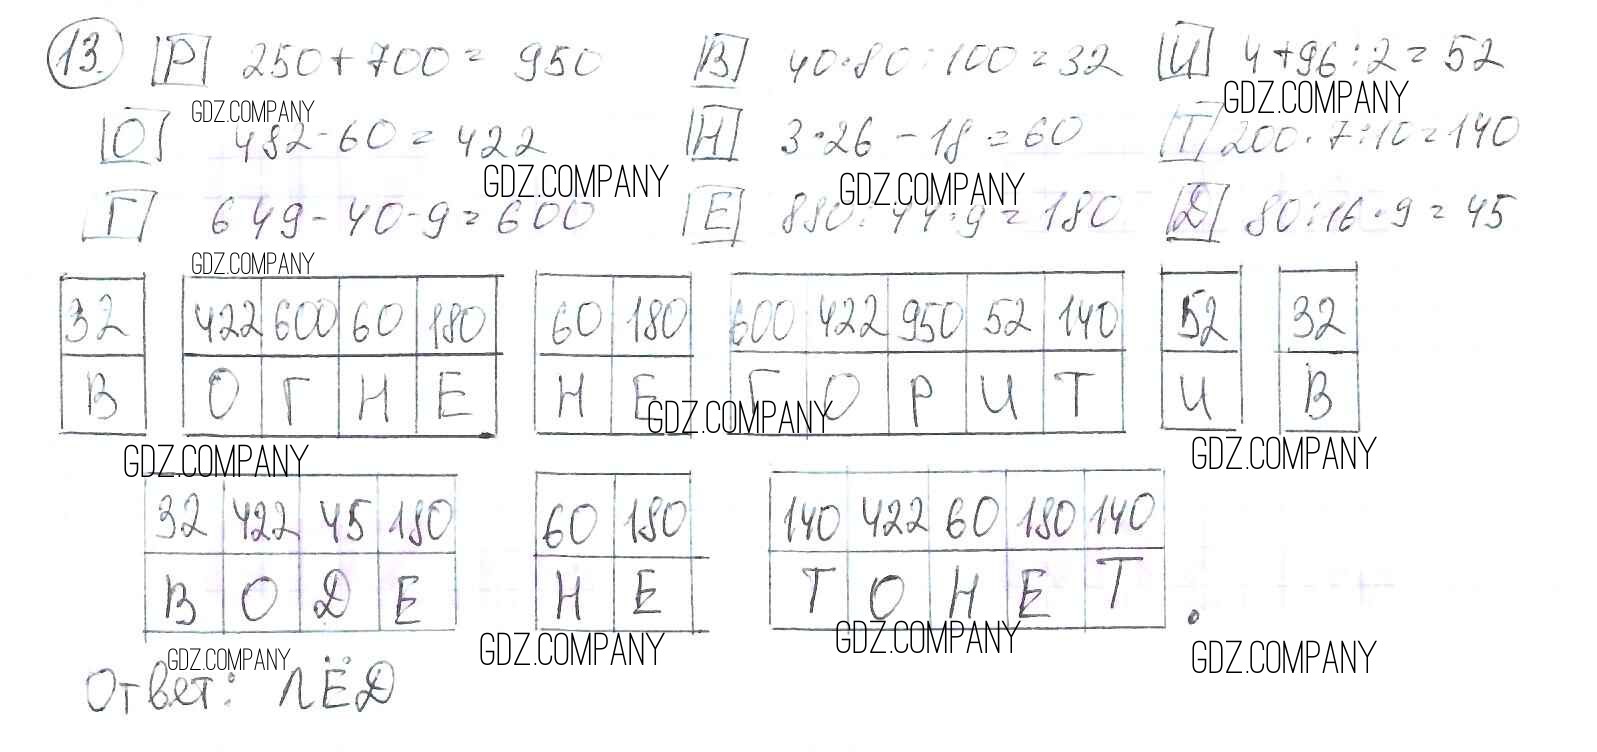 13. Р 250+700=950 В 40·80:100=32 И 4+96:2=52
GDZ.COMPANY GDZ.COMPANY
О 482-60=422 Н 3·26-18=60 Т 200·7:10=140
GDZ.COMPANY GDZ.COMPANY
Г 649-40-9=600 Е 880:44·9=180 Д 80:16·9=45
GDZ.COMPANY
32 422 600 60 180 60 180 600 422 950 52 140 52 32
В О Г Н Е Н Е Г О Р И Т И В
GDZ.COMPANY
GDZ.COMPANY GDZ.COMPANY
32 422 45 180 60 180 140 422 60 180 140
В О Д Е Н Е Т О Н Е Т .
GDZ.COMPANY GDZ.COMPANY GDZ.COMPANY GDZ.COMPANY
Ответ: ЛЁД